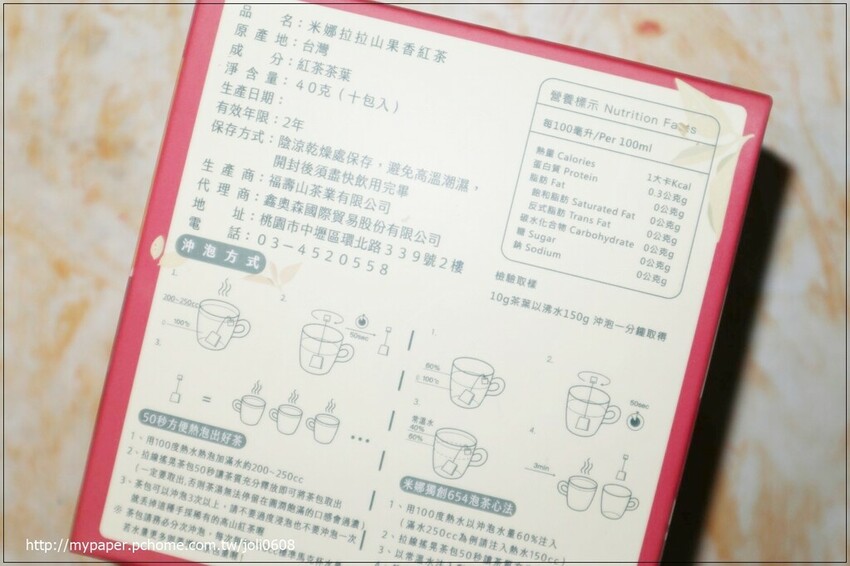 品名：米娜拉拉山果香紅茶
原產地：台灣
成分：紅茶茶葉
淨含量：40克（十包入）
生產日期：
有效年限：2年
保存方式：陰涼乾燥處保存，避免高溫潮濕，
開封後須盡快飲用完畢
生產商：福壽山茶業有限公司
代理商：鑫奧森國際貿易股份有限公司
地址：桃園市中壢區環北路339號2樓
電話：03-4520558
營養標示 Nutrition Facts
每100毫升/Per 100ml
熱量 Calories 1大卡Kcal
蛋白質 Protein 0.3公克g
脂肪 Fat 0公克g
飽和脂肪 Saturated Fat 0公克g
反式脂肪 Trans Fat 0公克g
碳水化合物 Carbohydrate 0公克g
糖 Sugar 0公克g
鈉 Sodium 0公克g
檢驗取樣
10g茶葉以沸水150g 沖泡一分鐘取得
沖泡方式
1.
200~250cc
100°c
2.
50sec
3.
=
50秒方便熱泡出好茶
1、用100度熱水熱泡加滿水約200~250cc
2、拉線搖晃茶包50秒讓茶質充分釋放即可將茶包取出
（一定要取出,否則茶湯無法停留在圓潤飽滿的口感會過濃）
3、茶包可以沖泡3次以上，請不要過度浸泡也不要沖泡一次
就丟掉這種手採稀有的高山紅茶喔
※ 茶包請務必分次沖泡，
1.
60%
100°c
2.
50sec
3.
常溫水
40%
60%
4.
3min
米娜獨創654泡茶心法
1、用100度熱水以沖泡水量60%注入
（滿水250cc為例請注入熱水150cc）
2、拉線搖晃茶包50秒讓茶
3、以常溫水注入
http://mypaper.pchome.com.tw/joli0608